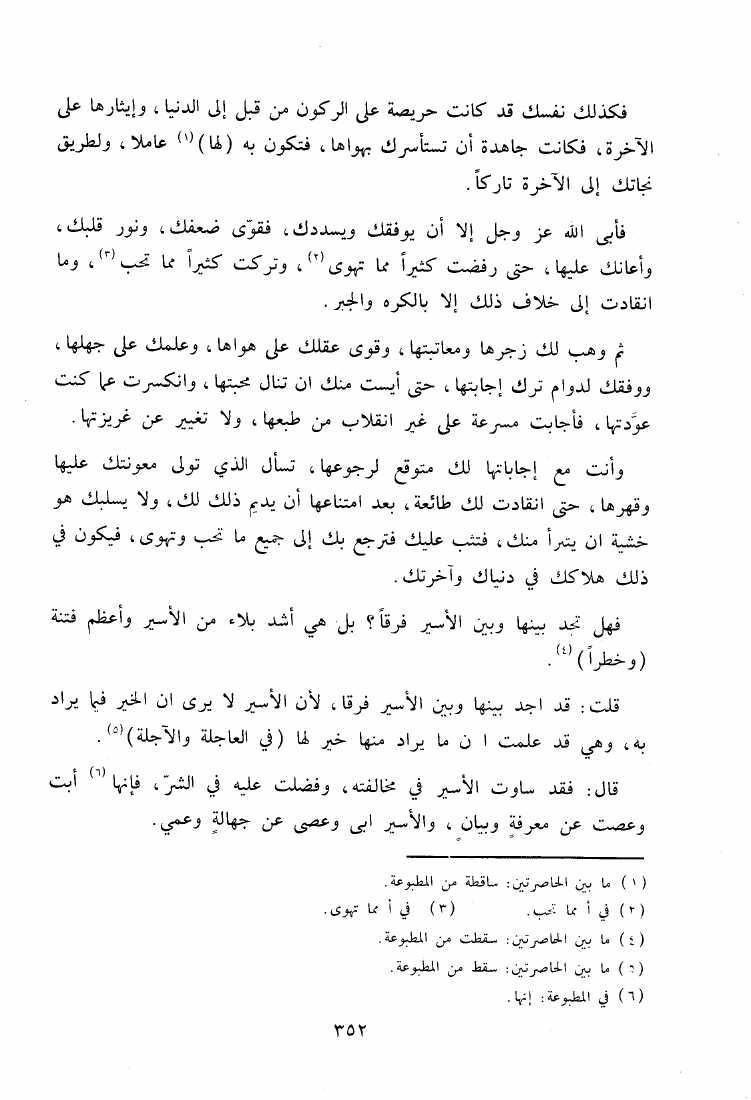 فكذلك نفسك قد كانت حريصة على الركون من قبل إلى الدنيا، وإيثارها على
الآخرة، فكانت جاهدة أن تستأسرك بهواها، فتكون به (لها)(١) عاملا، ولطريق
نجاتك إلى الآخرة تاركاً.
فأبى الله عز وجل إلا أن يوفقك ويسددك، فقوّى ضعفك، ونور قلبك،
وأعانك عليها، حتى رفضت كثيراً مما تهوى(٢)، وتركت كثيراً مما تحب(٣)، وما
انقادت إلى خلاف ذلك إلا بالكره والجبر.
ثم وهب لك زجرها ومعاتبتها، وقوى عقلك على هواها، وعلمك على جهلها،
ووفقك لدوام ترك إجابتها، حتى أيست منك ان تنال محبتها، وانكسرت عما كنت
عوَّدتها، فأجابت مسرعة على غير انقلاب من طبعها، ولا تغيير عن غريزتها.
وأنت مع إجاباتها لك متوقع لرجوعها، تسأل الذي تولى معونتك عليها
وقهرها، حتى انقادت لك طائعة، بعد امتناعها أن يديم ذلك لك، ولا يسلبك هو
خشية ان يتبرأ منك، فتثب عليك فترجع بك إلى جميع ما تحب وتهوى، فيكون في
ذلك هلاكك في دنياك وآخرتك.
فهل تجد بينها وبين الأسير فرقاً؟ بل هي أشد بلاء من الأسير وأعظم فتنة
(وخطراً)(٤).
قلت: قد اجد بينها وبين الأسير فرقا، لأن الأسير لا يرى ان الخير فيما يراد
به، وهي قد علمت ا ن ما يراد منها خير لها (في العاجلة والآجلة)(٥).
قال: فقد ساوت الأسير في مخالفته، وفضلت عليه في الشرّ، فإنها(٦) أبت
وعصت عن معرفةٍ وبيانٍ، والأسير ابى وعصى عن جهالةٍ وعمي.
(١) ما بين الحاصرتين: ساقطة من المطبوعة.
(٢) في أ مما تحب. (٣) في أ مما تهوى.
(٤) ما بين الحاصرتين: سقطت من المطبوعة.
(٥) ما بين الحاصرتين: سقط من المطبوعة.
(٦) في المطبوعة: إنها.
٣٥٢